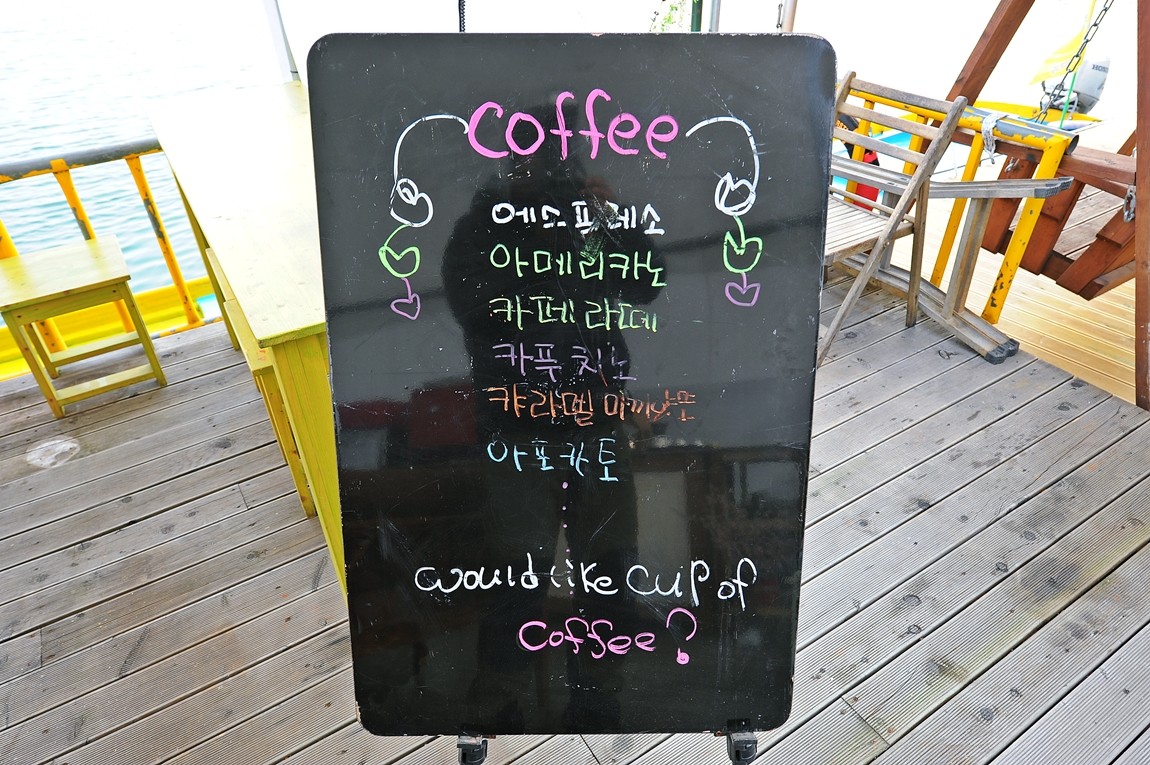 coffee
에스프레소
아메리카노
카페라떼
카푸치노
캬라멜 마끼야또
아포카토
would like cup of
coffee?